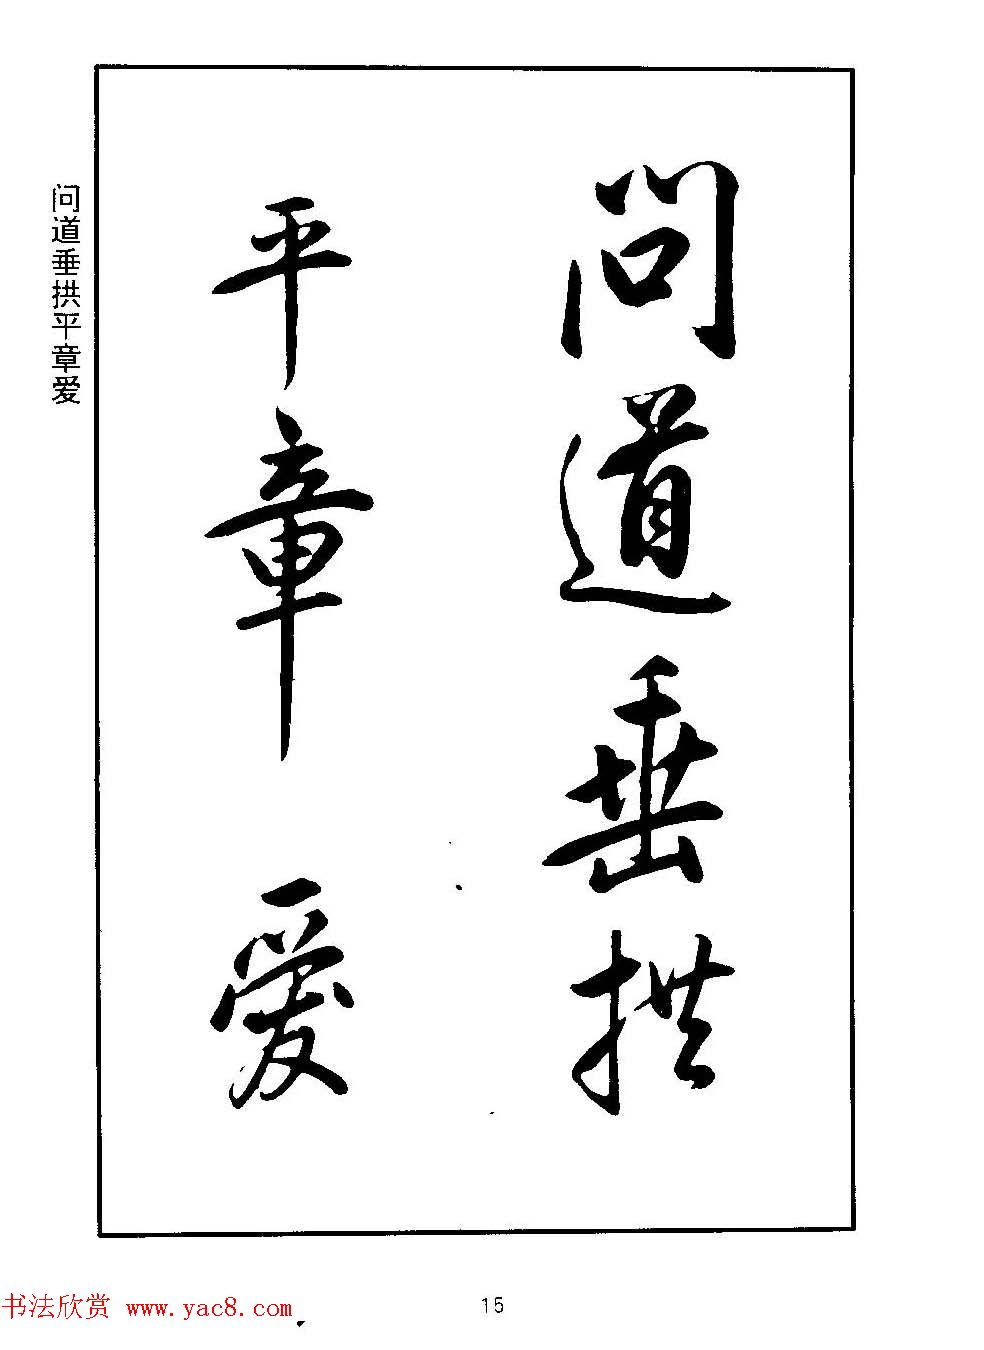 問道垂拱
平章愛
问道垂拱平章爱
15
书法欣赏 www.yac8.com